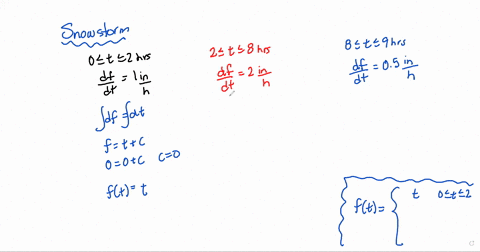 Snowstorm
0 ≤ t ≤ 2 hrs
df/dt = 1 in/h
∫df = ∫dt
f = t + C
0 = 0 + C   C = 0
f(t) = t
2 ≤ t ≥ 8 hrs
df/dt = 2 in/h
8 ≤ t ≤ 9 hrs
df/dt = 0.5 in/h
f(t) = { t   0 ≤ t ≤ 2